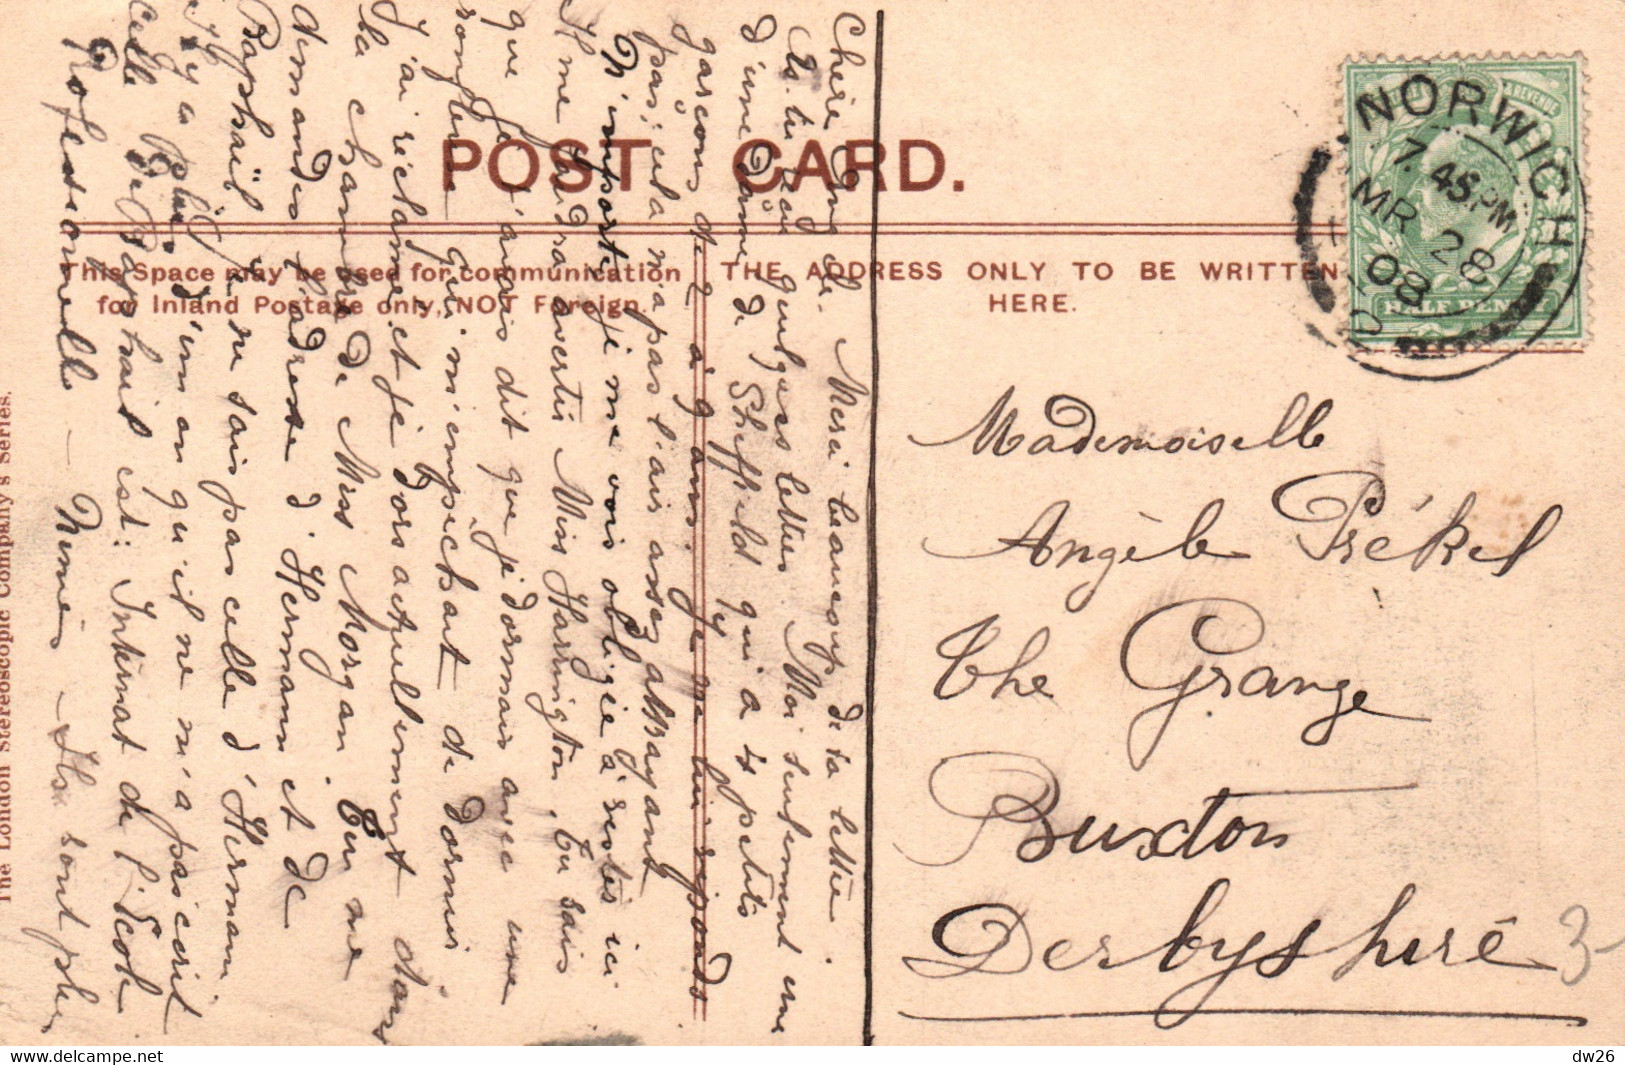 POST CARD.
This Space may be used for communication
for Inland Postage only, NOT Foreign.
THE ADDRESS ONLY TO BE WRITTEN
HERE.
The London Stereoscopic Company's Series.
NORWICH
7.45 PM
MR 28
08
REVENUE
HALF PENNY
Mademoiselle
Angèle Prékel
The Grange
Buxton
Derbyshire
3-
Merci beaucoup de ta lettre.
As-tu reçu quelques lettres. Moi seulement une
d'une dame de Sheffield qui a 4 petits
garçons de 2 à 9 ans. Je ne lui réponds
pas, cela n'a pas l'air assez attrayant
N'importe je me vois obligée à rester ici
Il me faudra avertir Miss Harrington. Tu sais
que j'avais dit que je dormais avec une
qui m'empêchait de dormir
J'ai réclamé et je dors actuellement dans
la chambre de Miss Morgan. Tu me
demandes l'adresse d'Hermann et de
Raphaïl je ne sais pas celle d'Hermann
Il y a plus d'un an qu'il ne m'a pas écrit
celle de Raphaïl est: Internat de l'Ecole
Professionnelle — Nimes